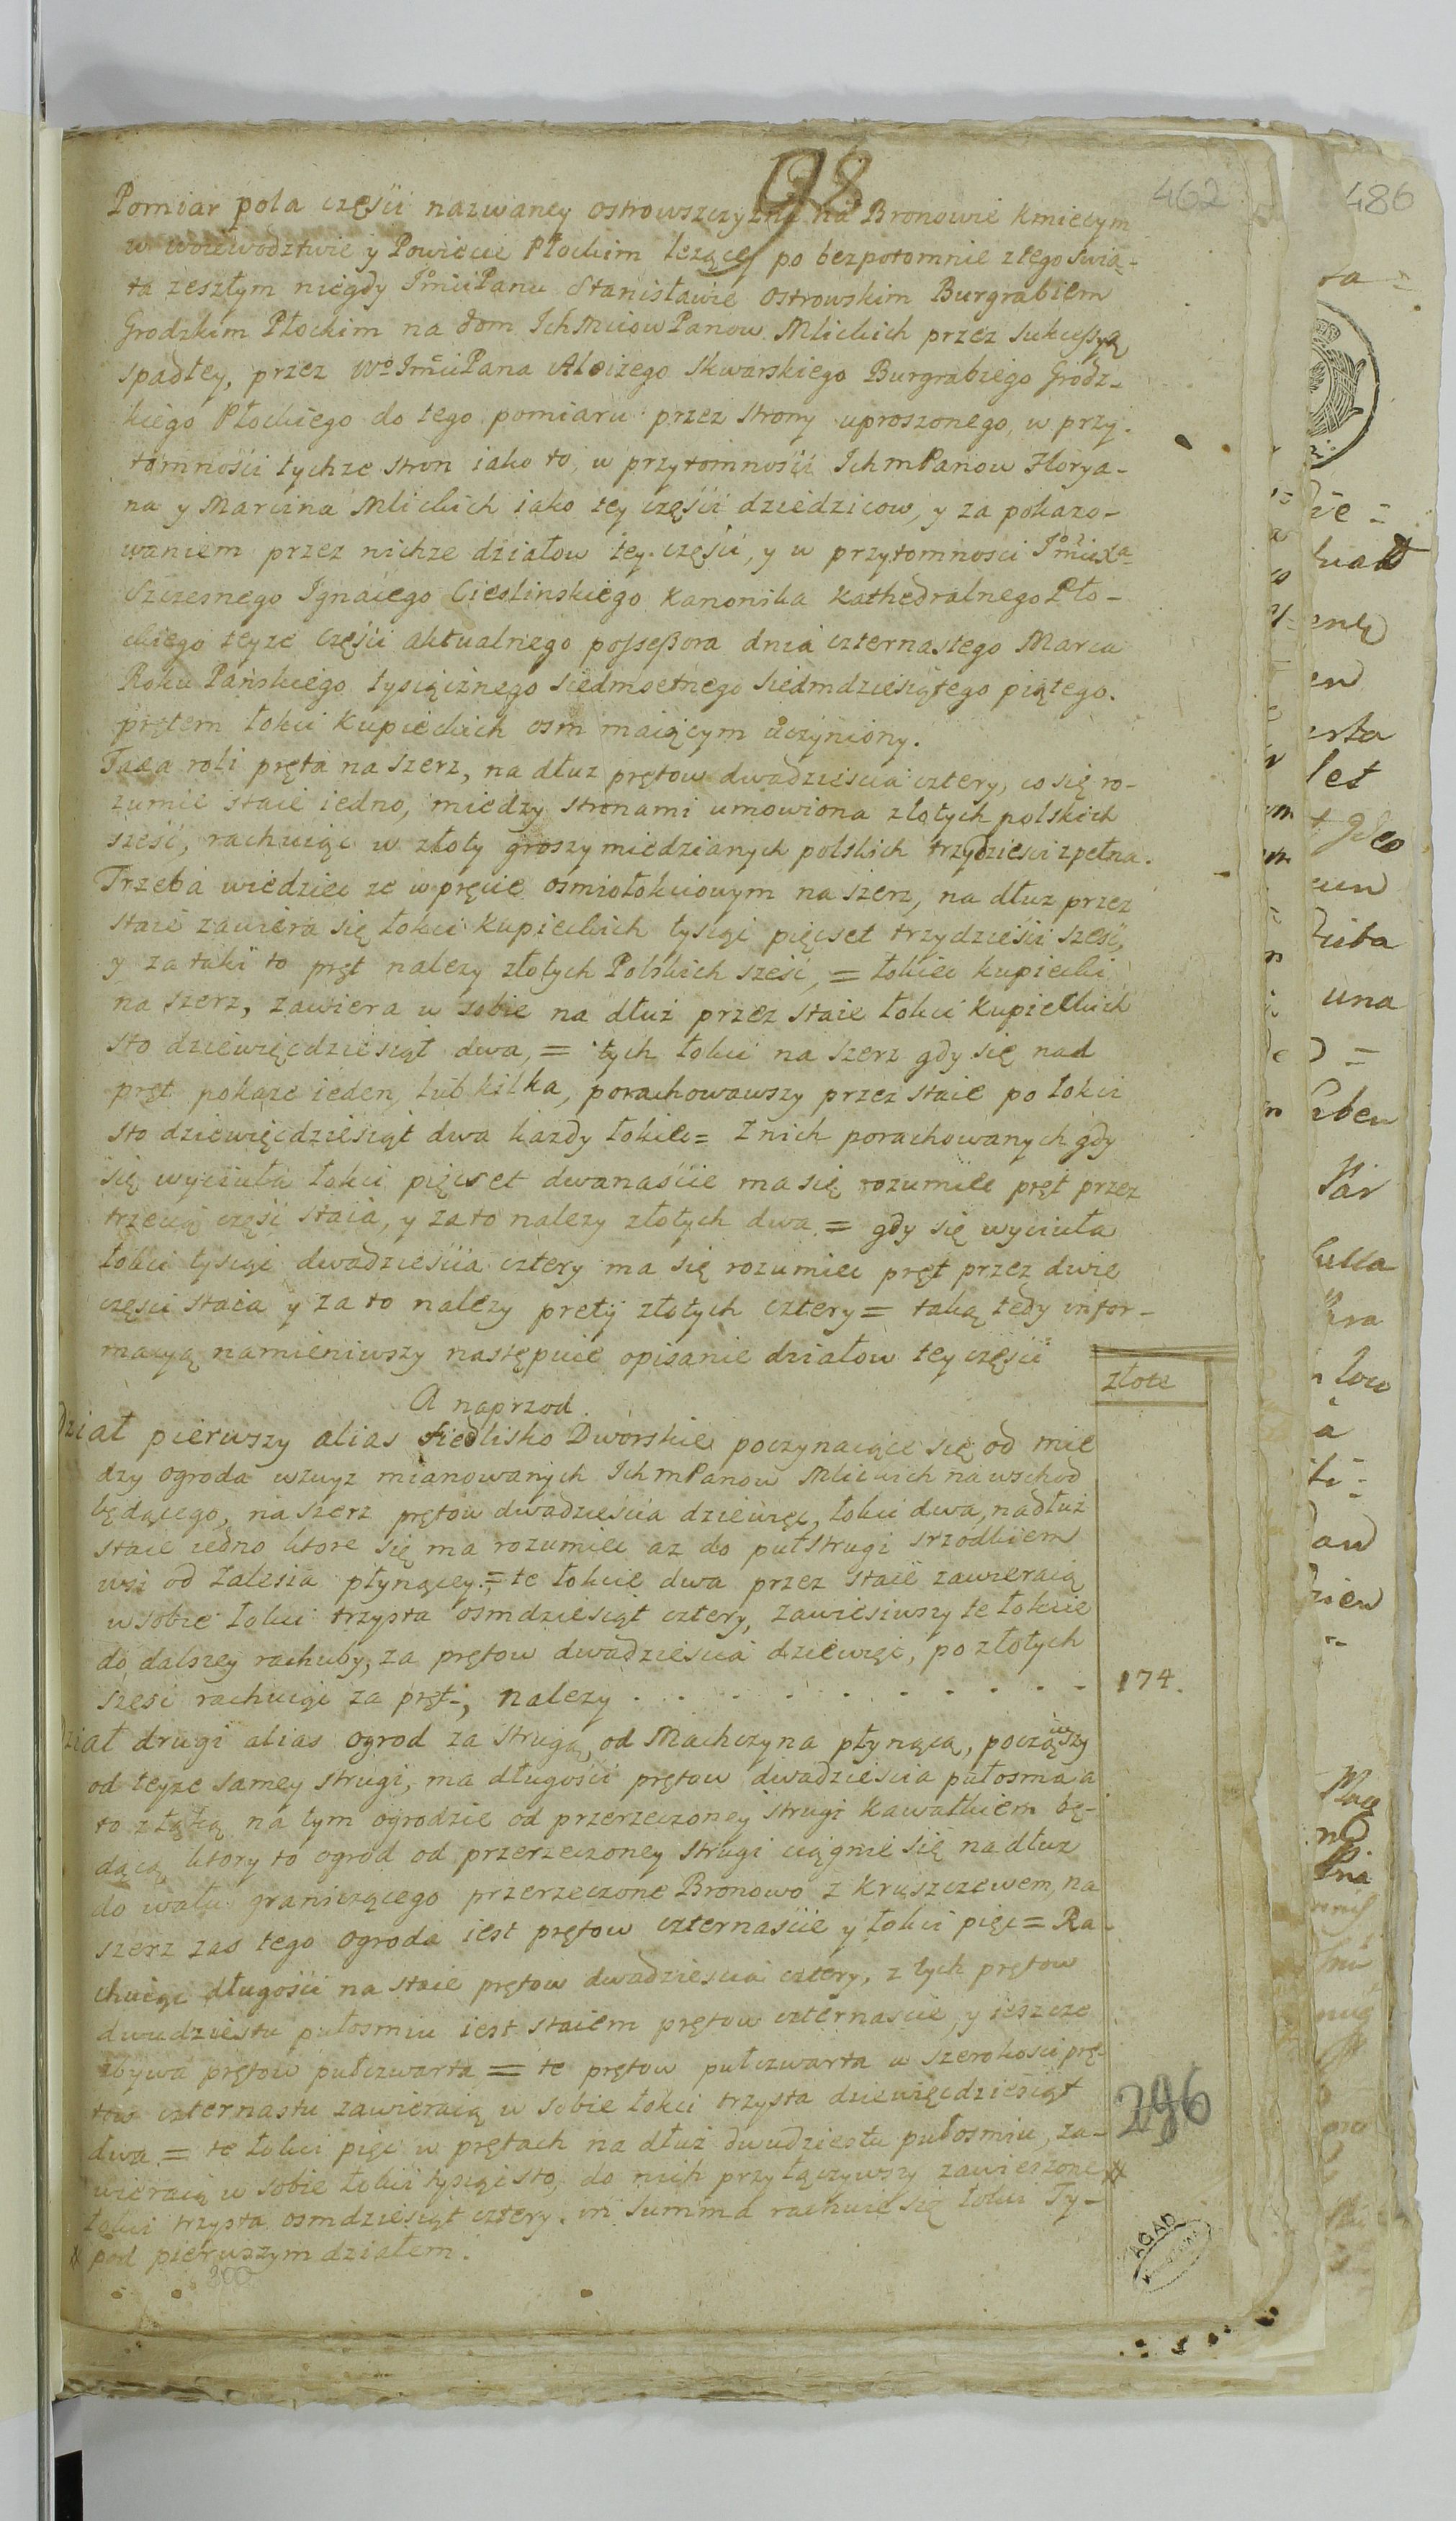 98
462
486
Pomiar pola częsci nazwaney ostrowszczyzna na Bronowie Kmiecym
w woiewodztwie y Powiecie Płockim lezącey po bezpotomnie z tego swia-
ta zeszłym niegdy JmciPanu Stanisławie Ostrowskim Burgrabiem
Grodzkim Płockim na dom IchMciow Panow Mlickich przez Sukcessyą
spadłey, przez Wo JmciPana Aloizego Skwarskiego Burgrabiego Grodz-
kiego Płockiego do tego pomiaru przez strony uproszonego, w przy-
tomnosci tychze stron iako to, w przytomnosci IchmPanow Florya-
na y Marcina Mlickich iako tey częsci dziedzicow, y za pokazo-
waniem przez nichze działow tey częsci, y w przytomnosci JmciXa
Szczesnego Ignacego Cieslinskiego Kanonika Kathedralnego Pło-
ckiego teyze Częsci aktualnego possessora dnia czternastego Marca
Roku Panskiego tysiącznego siedmsetnego siedmdziesiątego piątego.
prętem łokci Kupieckich osm maiącym uczyniony.
Taxa roli pręta na szerz, na dłuz prętow dwadziescia cztery, co się ro-
zumie staie iedno, miedzy stronami umowiona złotych polskich
szesc, rachuiąc w złoty groszy miedzianych polskich trzydziesci zpełna.
Trzeba wiedziec ze w pręcie osmiołokciowym na szerz, na dłuz przez
staie zawiera się łokci kupieckich tysiąc pięcset trzydziesci szesc,
y za taki to pręt nalezy złotych Polskich szesc, = łokiec kupiecki
na szerz, zawiera w sobie na dłuz przez staie łokci Kupieckich
sto dziewięcdziesiąt dwa, = tych łokci na szerz gdy się nad
pręt pokaze ieden, lub kilka, porachowawszy przez staie po łokci
sto dziewięcdziesiąt dwa kazdy łokiec = z nich porachowanych gdy
się wyciuła łokci pięcset dwanascie ma się rozumiec pręt przez
trzecią częsc staia, y za to nalezy złotych dwa = gdy się wyciuła
łokci tysiąc dwadziescia cztery ma się rozumiec pręt przez dwie
częsci staia y za to nalezy złotych cztery = taką tedy infor-
macyą namieniwszy następuie opisanie działow tey częsci
złote
A naprzod
Dział pierwszy alias siedlisko Dworskie poczynaiące się od mie
dzy ogroda wzwyz mianowanych IchmPanow Mlickich na wschod
będącego, na szerz prętow dwadziescia dziewięc, łokci dwa, na dłuz
staie iedno ktore się ma rozumiec az do puł strugi srzodkiem
wsi od Zalesia płynącey, = te łokcie dwa przez staie zawieraią
w sobie łokci trzysta osmdziesiąt cztery, zawiesiwszy te łokcie
do dalszey rachuby, za prętow dwadziescia dziewięc, po złotych
szesc rachuiąc za pręt, nalezy . . . . . . . . . . 174.
Dział drugi alias ogrod za strugą, od Machczyna płynącą, począwszy
od teyze samey strugi, ma długosci prętow dwadziescia pułosma a
to z łąką na tym ogrodzie od przerzeczoney strugi kawałkiem bę-
dącą, ktory to ogrod od przerzeczoney strugi ciągnie się na dłuz
do wału graniczącego przerzeczone Bronowo z Kruszczewem, na
szerz zas tego ogroda iest prętow czternascie y łokci pięc = Ra-
chuiąc długosci na staie prętow dwadziescia cztery, z tych prętow
dwudziestu pułosmu iest staiem prętow czternascie, y ieszcze
zbywa prętow pułczwarta = te prętow pułczwarta w szerokosci prę-
tow czternastu zawieraią w sobie łokci trzysta dziewięcdziesiąt
dwa = te łokci pięc w prętach na dłuz dwudziestu pułosmiu, za-
wieraią w sobie łokci tysiąc sto, do nich przyłączywszy zawieszone #
łokci trzysta osmdziesiąt cztery. in summa rachuie się łokci Ty-
# pod pierwszym działem.
296
300
AGAD